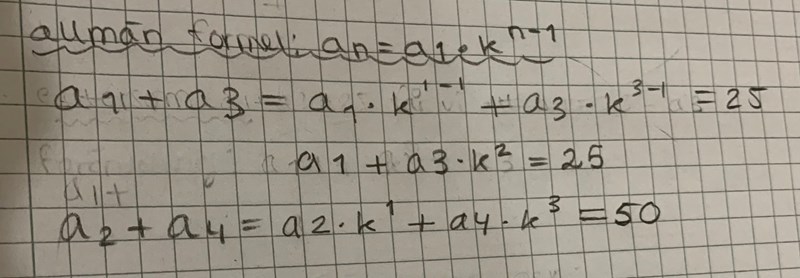 allmän formel: an = a1 · k^n-1
a1 + a3 = a1 · k^1-1 + a3 · k^3-1 = 25
a1 + a3 · k^2 = 25
a1 +
a2 + a4 = a2 · k^1 + a4 · k^3 = 50